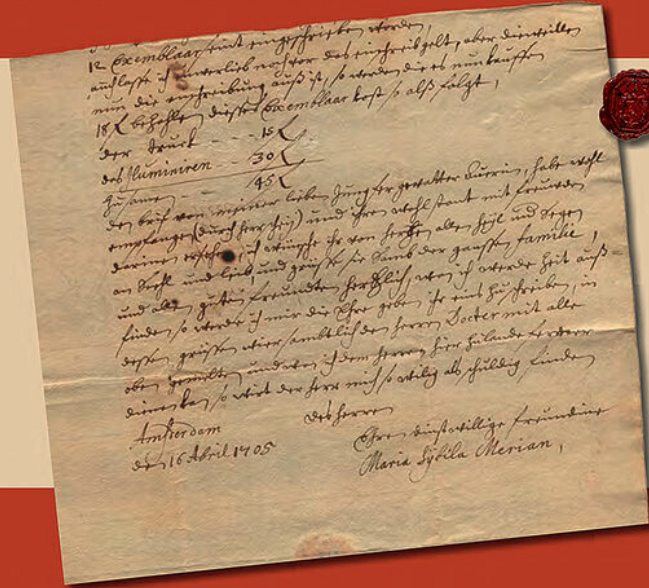 12 Exemblaar seint eingeschrieben worden,
auch lasse ich vor das einschreib gelt, aber dieweillen
nun die einschreibung auß ist, so werden die es nun kauffen
18 behahlen dieses Exemblaar kost so alß folgt,
der Druck - - - 15
das Jluminiren - - 30
Zusamen - - 45
den brif von meiner lieben Jungfer gevatter Auerin, habe wohl
empfangen (durch herr ) und ihren wohlstant mit freuwden
darinen ersehen, ich wünsche ihr von herzen allen heyl und segen
an Seehl und leib, und grüsse sie sambt der ganssen familie,
und allen guten freundten herzlich, wan ich werde Zeit auß-
finden so werde ich mir die Ehre geben ihr eins zu schreiben, in
dessen grüssen wier sambtlich den herren Docter mit alle
oben gemelten und wan ich dem herren hier zu lande ferdeer
dienen kan, so wirt der herr mich so wilig als schuldig finden
Amsterdam des herren
den 16 Abril 1705 Ehren dienstwillige freundinne
Maria Sybilla Merian,